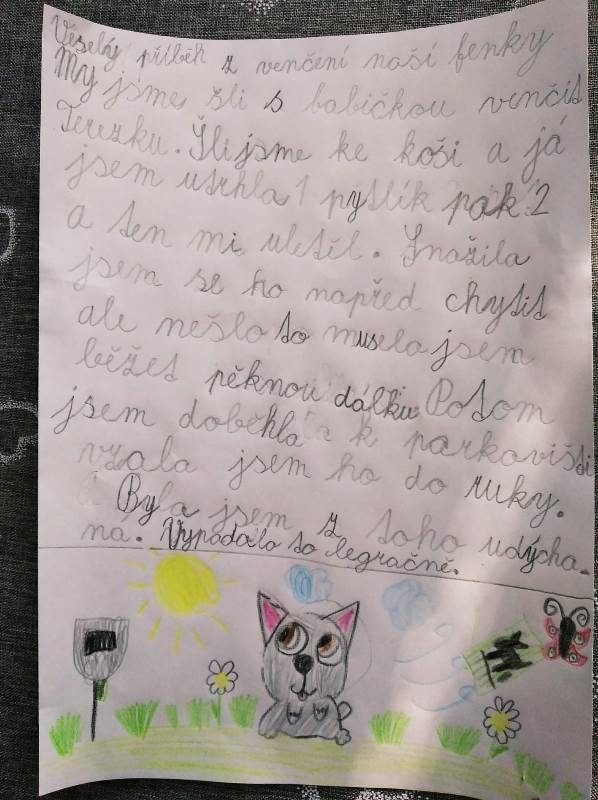 Veselý příběh z venčení naší fenky
My jsme šli s babičkou venčit
Terezku. Šli jsme ke koši a já
jsem utrhla 1 pytlík pak 2
a ten mi uletěl. Snažila
jsem se ho napřed chytit
ale nešlo to musela jsem
běžet pěknou dálku. Potom
jsem doběhla k parkovišti
vzala jsem ho do ruky.
Byla jsem z toho udýcha-
ná. Vypadalo to legračně.